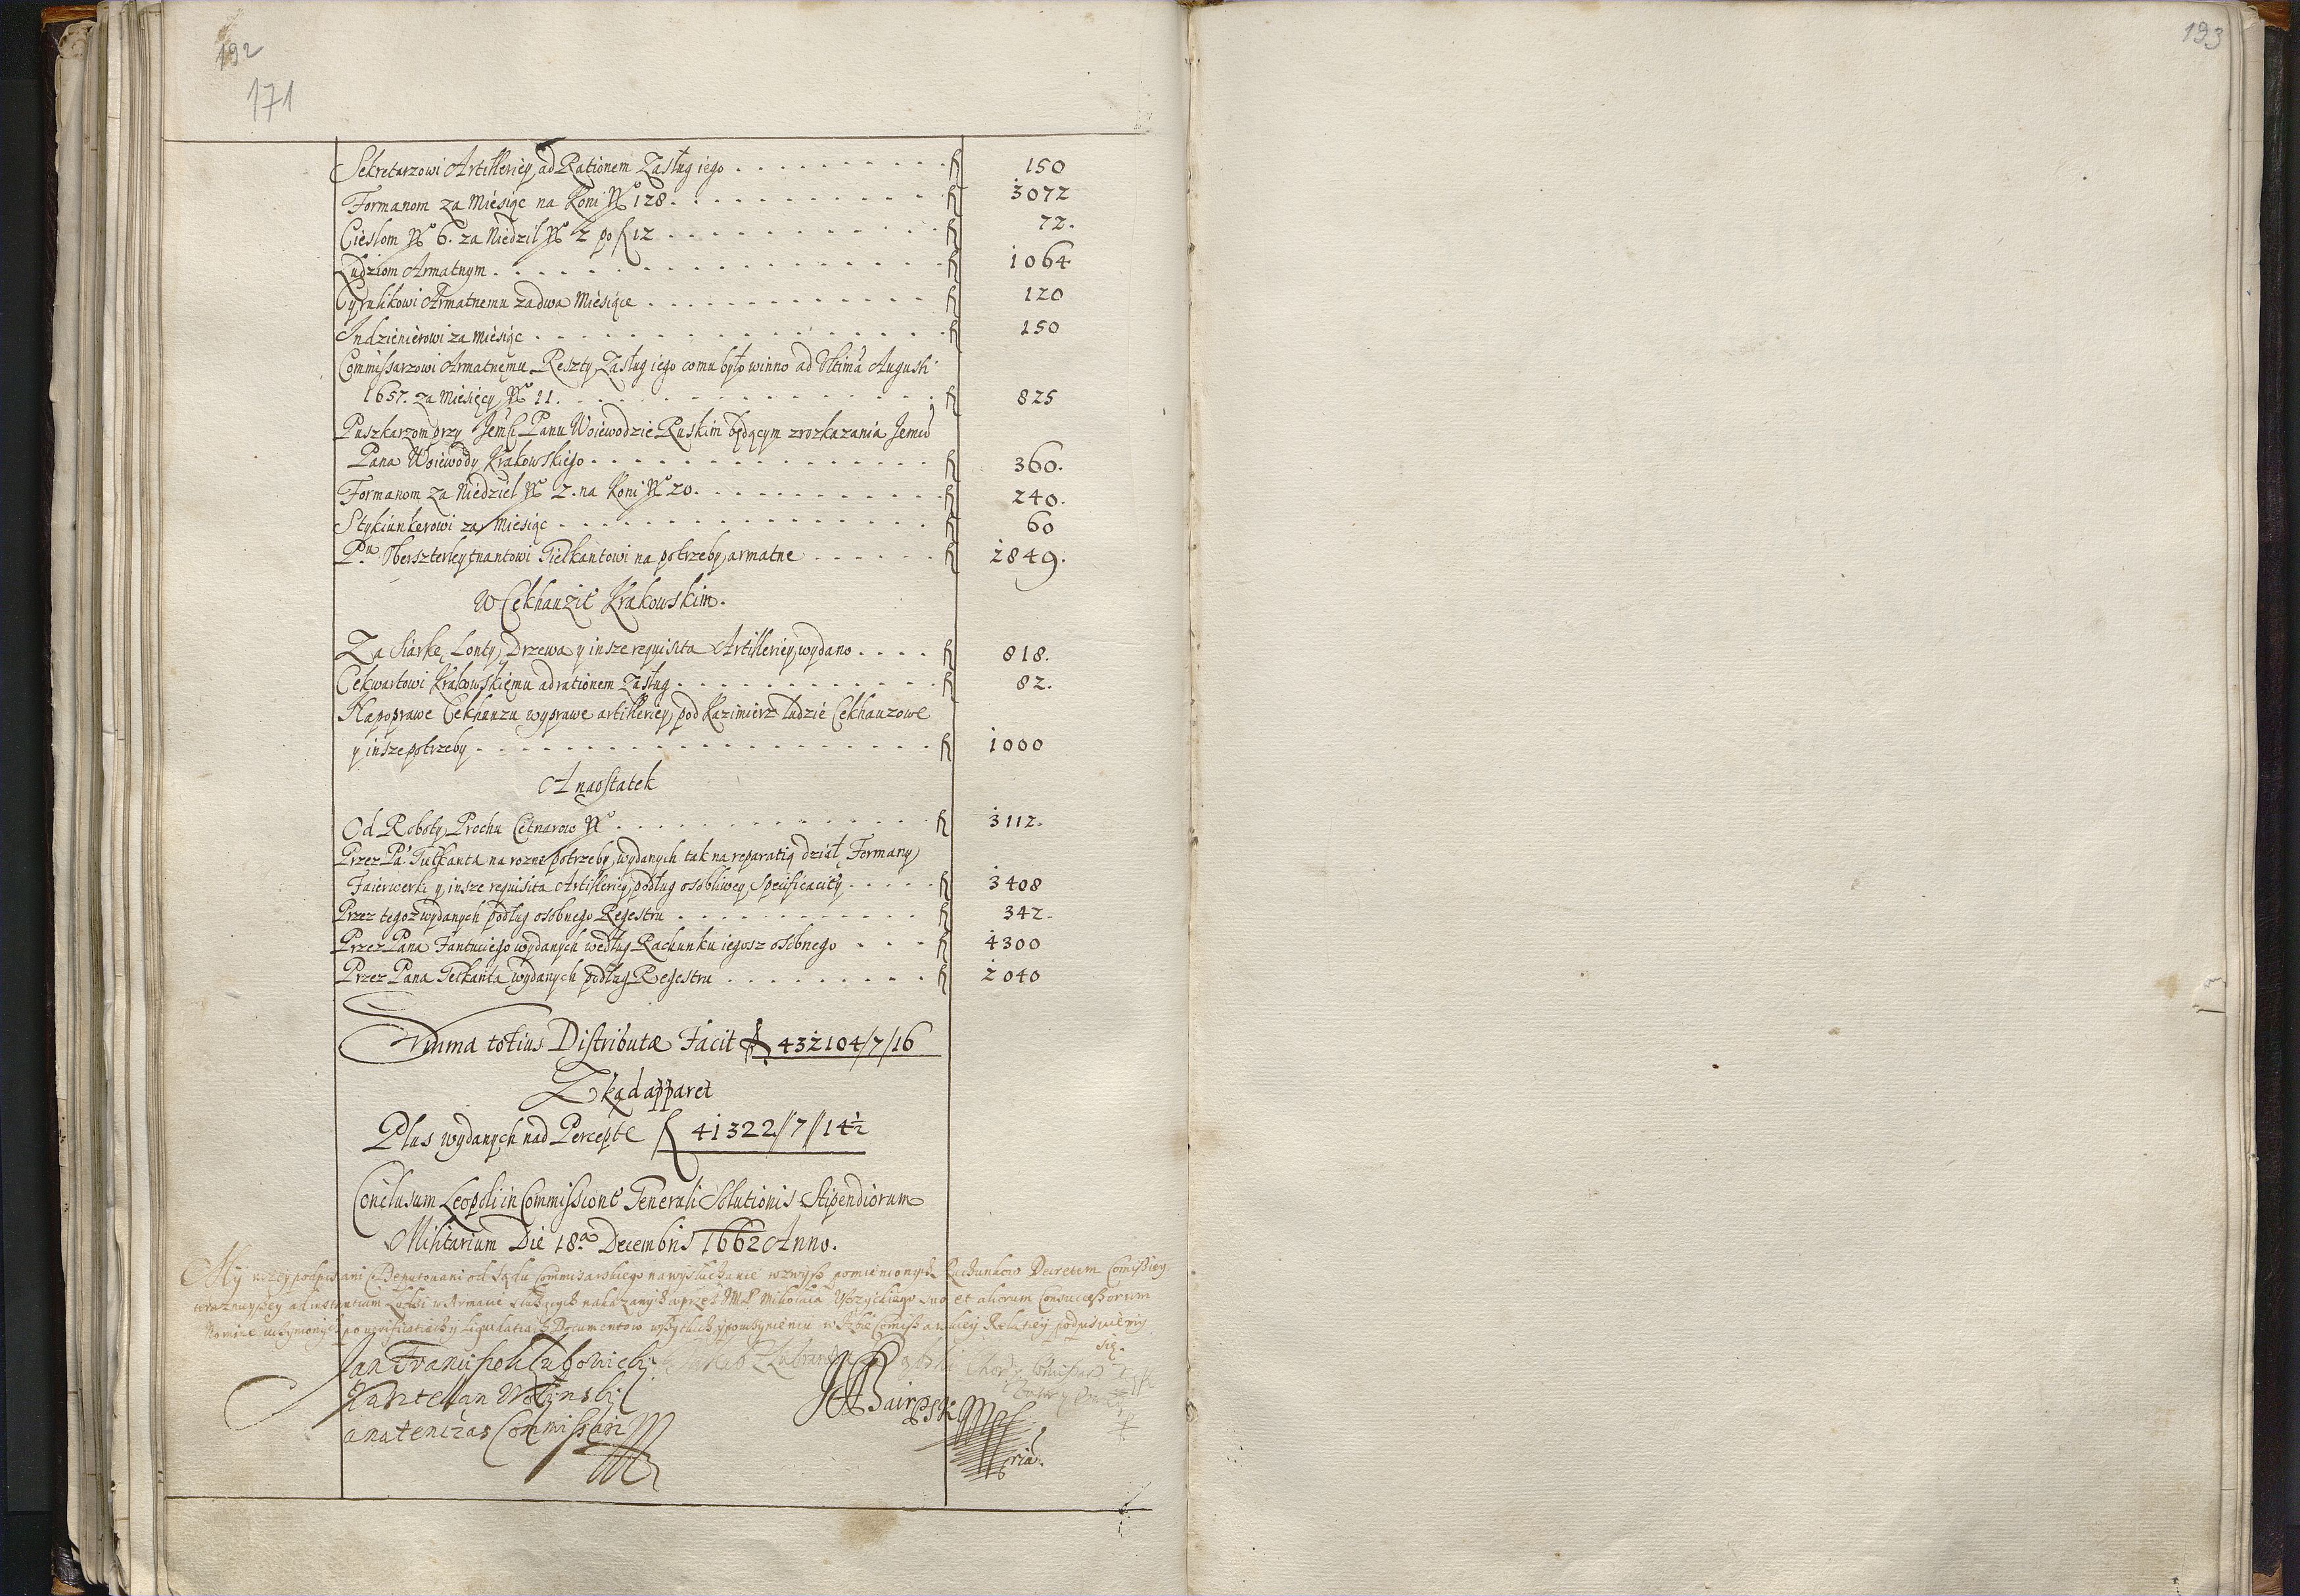 192
193
171
Sekretarzowi Artilleriey ad Rationem Zasług iego . . . . . . . . . fl 150
Formanom za Miesiąc na Koni No 128 . . . . . . . . . . . fl 3072
Cieslom No 6. za Niedzil No 2 po f 12 . . . . . . . . . . fl 72.
Ludziom Armatnym . . . . . . . . . . . . . . . . fl 1064
Cyrulikowi Armatnemu za dwa Miesiące . . . . . . . . . . . fl 120
Indzienierowi za miesiąc . . . . . . . . . . . . . . fl 150
Commissarzowi Armatnemu Reszty Zasług iego co mu było winno ad Ultimā Augusti
1657. za Miesięcy No 11. . . . . . . . . . . . . . . fl 825
Puszkarzom przy Panu Woiewodzie Ruskim będącym z rozkazania
Pana Woiewody Krakowskiego . . . . . . . . . . . . . . fl 360.
Formanom za Niedziel No 2. na Koni No 20. . . . . . . . . . fl 240.
Stykiunkerowi za Miesiąc . . . . . . . . . . . . . . fl 60
Pnu Oberszterleytnantowi Gielkantowi na potrzeby armatne . . . . . . fl 2849.
W Cekhauzie Krakowskim.
Za Siarkę, Lonty, Drzewa y insze requisita Artilleriey wydano . . . . fl 818.
Cekwartowi Krakowskiemu ad rationem Zasług . . . . . . . . . . fl 82.
Na poprawe Cekhauzu wyprawe artilleriey pod Kazimierz ludzie Cekhauzowe
y insze potrzeby . . . . . . . . . . . . . . . . fl 1000
A naostatek
Od Roboty Prochu Cetnarow No . . . . . . . . . . . . fl 3112.
Przez Pa. na rozne potrzeby wydanych tak na reparatią dział, Formany
Faierwerki y insze requisita Artilleriey podług osobliwey Specificaciey . . . . . fl 3408
Przez tegoz wydanych podług osobnego Regestru . . . . . . . . . . fl 342.
Przez Pana Fantuciego wydanych według Rachunku iegosz osobnego . . . fl 4300
Przez Pana Gelkanta wydanych podług Regestru . . . . . . . . . fl 2040
Summa totius Distributæ Facit fl 432104/7/16
Zkąd apparet
Plus wydanych nad Percepte f 41322//7//14½
Conclusum Leopoli in Commissione Generali Solutionis Stipendiorum
Militarium Die 18.a Decembris 1662 Anno.
My nizey podpisani Deputowani od Sądu Commisarskiego na wysłuchanie wzwysz pomienionych Rachunkow Decretem Comissiey
teraznieyszey ad instantiam Ludzi w Armacie sluzących nakazanych a przez Mikołaia suo et aliorum Consuccessorum
Nomine uczynionych po verificatiach y Liquidatiach Documentow wszytkich y powinieniu w Izbie Relatiey podpisuiemy
się.
Jan Franciszek Lubowicki
Kasztellan Wołynski
ana ten czas Commissarz